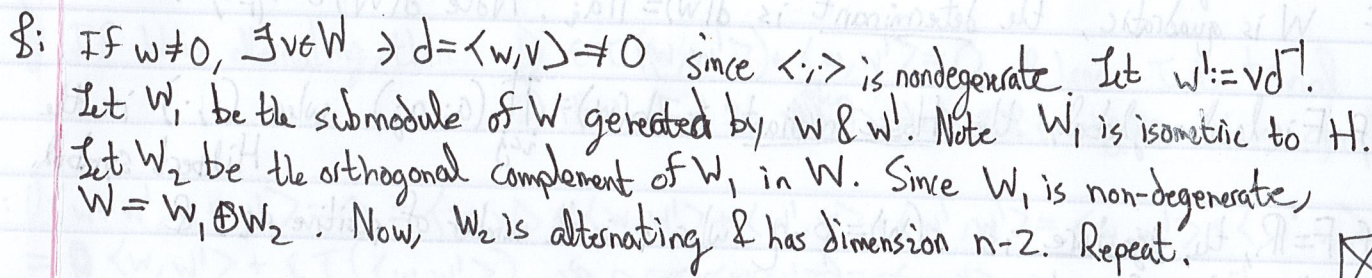 pf: If w≠0, ∃v∈W ∋ d=<w,v>≠0 since <·,·> is nondegenerate. Let w':=vd⁻¹.
Let W₁ be the submodule of W gereated by w & w'. Note W₁ is isometric to H.
Let W₂ be the orthogonal complement of W₁ in W. Since W₁ is non-degenerate,
W = W₁⊕W₂. Now, W₂ is alternating & has dimension n-2. Repeat.